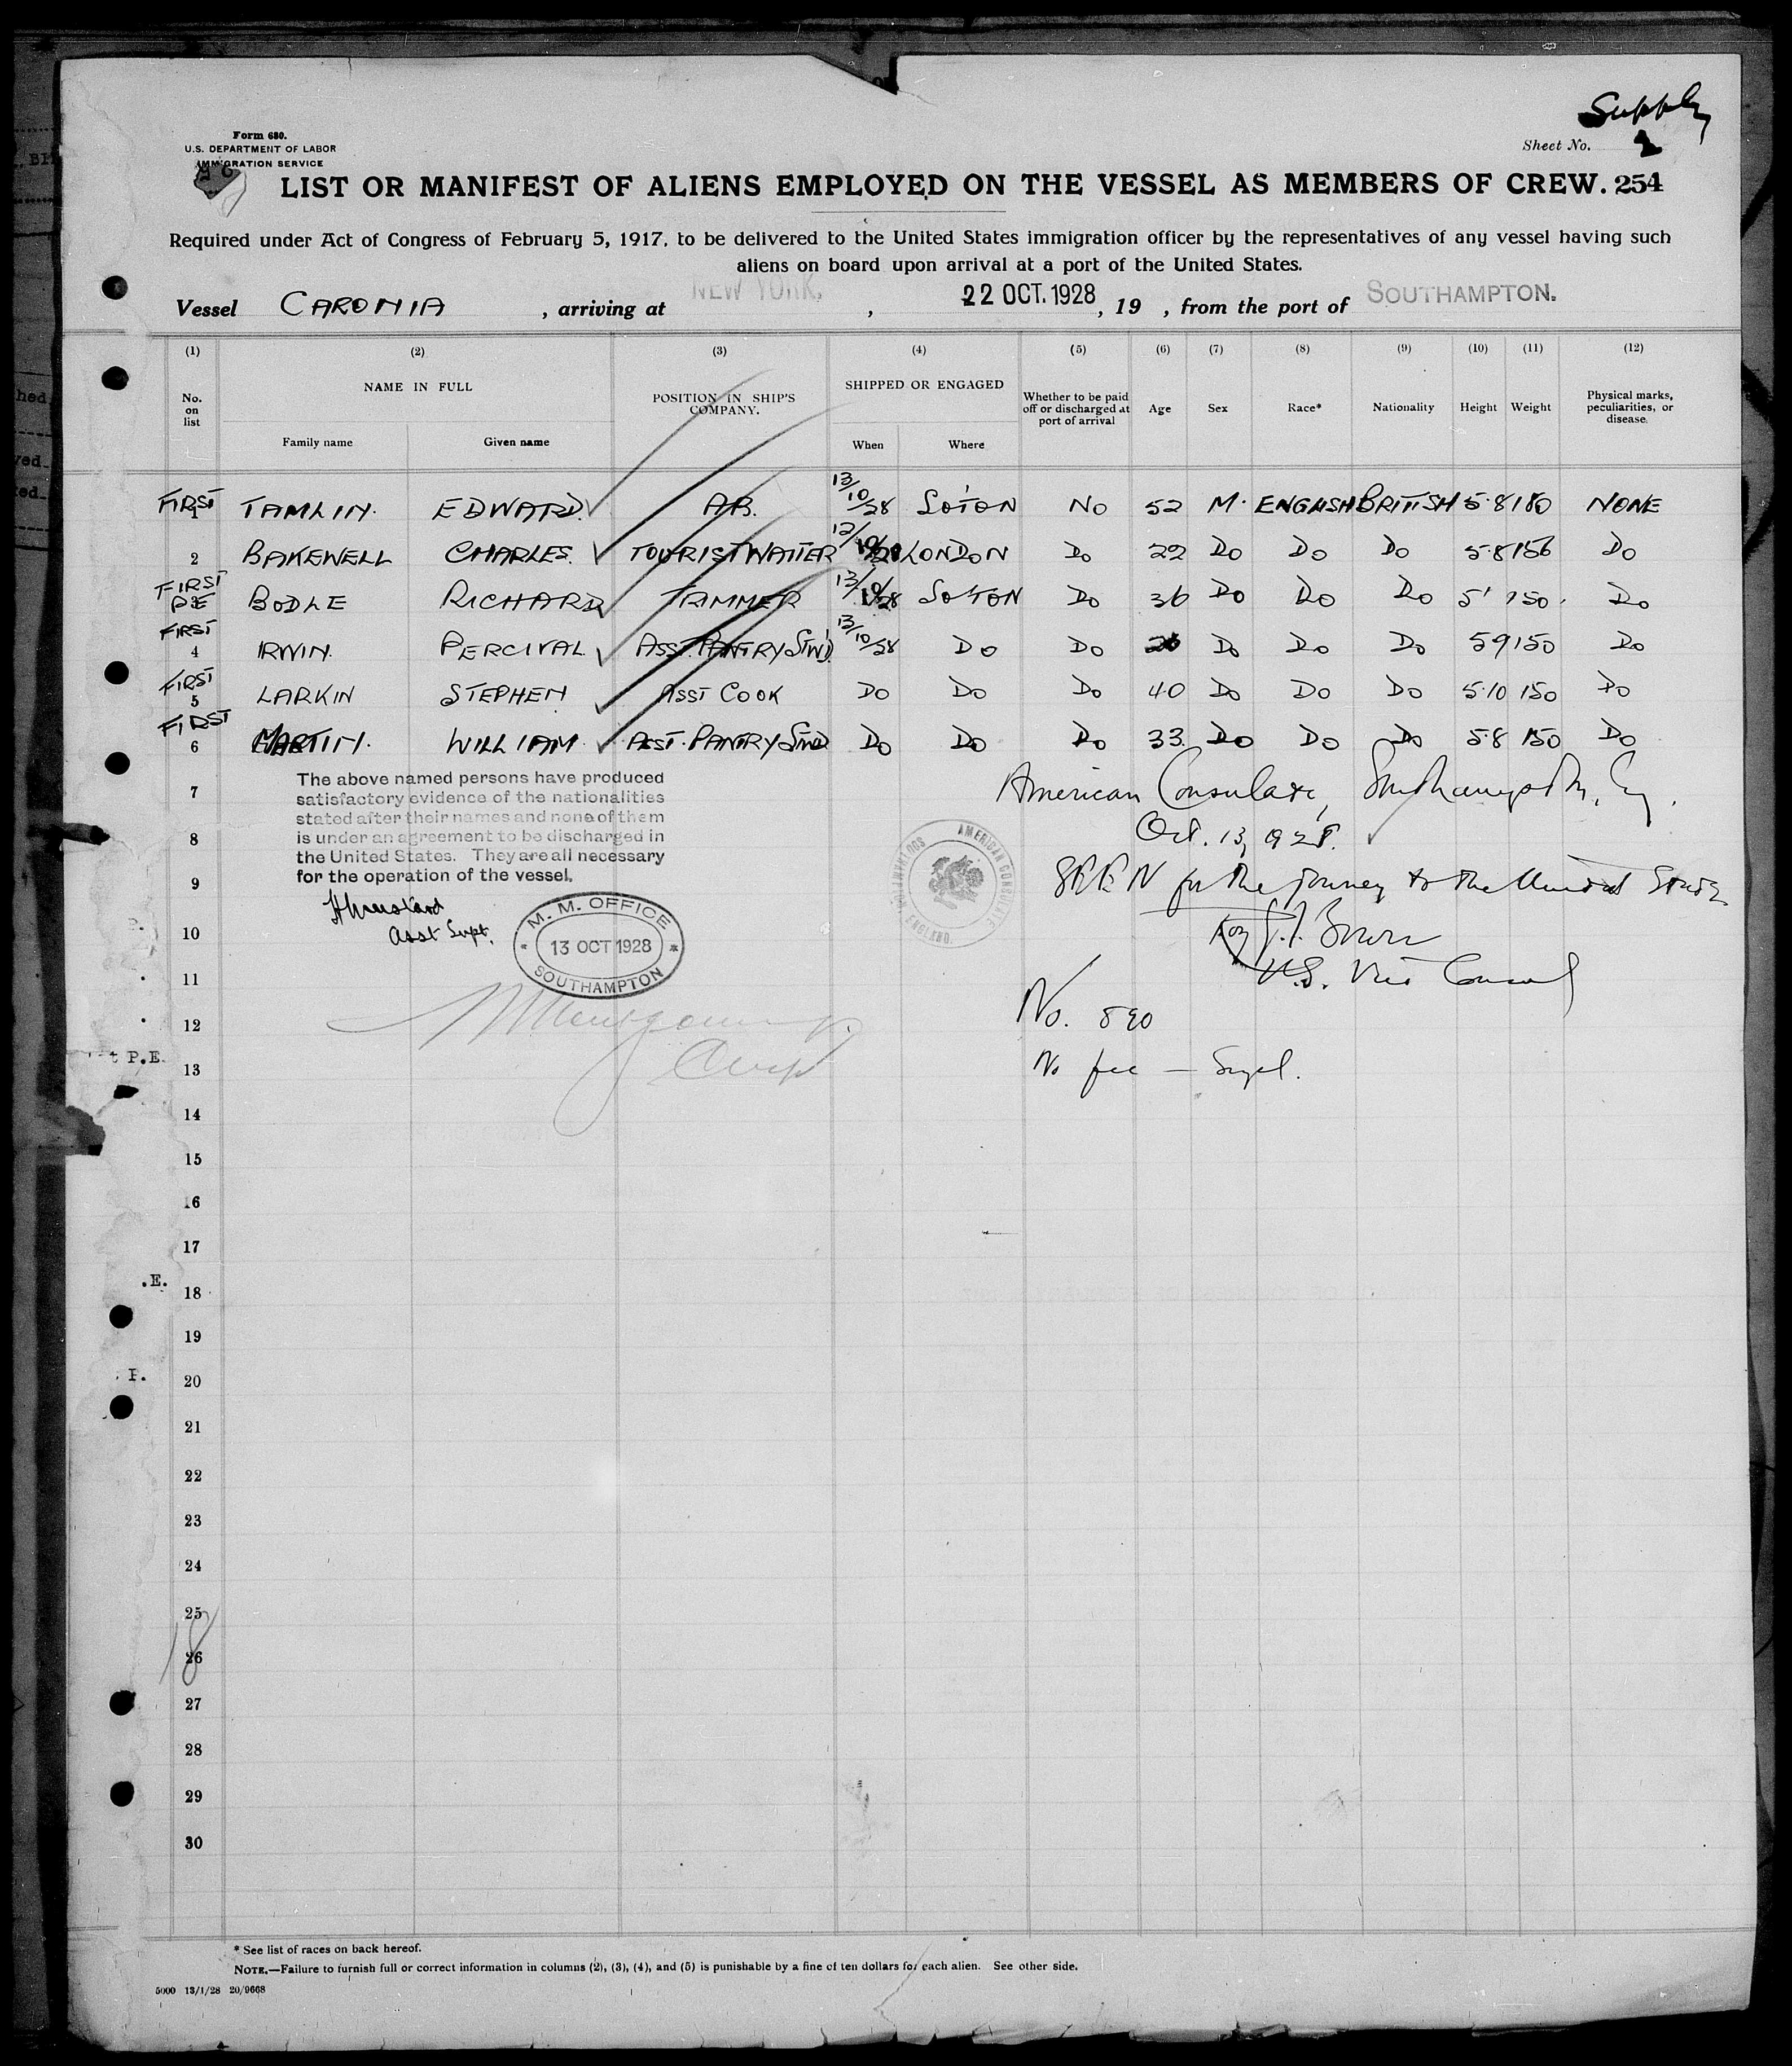 Supply
Form 680.
U.S. DEPARTMENT OF LABOR
IMMIGRATION SERVICE
Sheet No. 2
LIST OR MANIFEST OF ALIENS EMPLOYED ON THE VESSEL AS MEMBERS OF CREW. 254
Required under Act of Congress of February 5, 1917, to be delivered to the United States immigration officer by the representatives of any vessel having such
aliens on board upon arrival at a port of the United States.
Vessel CARONIA, arriving at NEW YORK, , 22 OCT. 1928, 19 , from the port of SOUTHAMPTON.
(1) (2) (3) (4) (5) (6) (7) (8) (9) (10) (11) (12)
No. on list NAME IN FULL POSITION IN SHIP'S COMPANY. SHIPPED OR ENGAGED Whether to be paid off or discharged at port of arrival Age Sex Race* Nationality Height Weight Physical marks, peculiarities, or disease.
Family name Given name When Where
FIRST 1 TAMLIN. EDWARD. A.B. 13/10/28 SOTON NO 52 M. ENGLISH BRITISH 5.8 180 NONE
2 BAKEWELL CHARLES. TOURIST WAITER 12/10/28 LONDON DO 22 DO DO DO 5.8 156 DO
FIRST 3 BODLE RICHARD TRIMMER 13/10/28 SO'TON DO 36 DO DO DO 5' 150. DO
FIRST 4 IRWIN. PERCIVAL ASST. PANTRY STWD. 13/10/28 DO DO DO DO DO 59 150 DO
FIRST 5 LARKIN STEPHEN ASST COOK DO DO DO 40 DO DO DO 5.10 150 DO
FIRST 6 MARTIN. WILLIAM. ASST. PANTRY STWD DO DO DO 33. DO DO DO 5.8 150 DO
The above named persons have produced
satisfactory evidence of the nationalities
stated after their names and none of them
is under an agreement to be discharged in
the United States. They are all necessary
for the operation of the vessel.
Asst Supt.
M. M. OFFICE
13 OCT 1928
SOUTHAMPTON
AMERICAN CONSULATE
SOUTHAMPTON
ENGLAND.
American Consulate, Southampton, Eng.
Oct. 13, 1928.
SEEN for the journey to the United States
Brown
U.S. Vice Consul
No. 890
No fee
7
8
9
10
11
12
13
14
15
16
17
18
19
20
21
22
23
24
25
26
27
28
29
30
18
P.E.
.E.
* See list of races on back hereof.
NOTE.—Failure to furnish full or correct information in columns (2), (3), (4), and (5) is punishable by a fine of ten dollars for each alien. See other side.
5000 13/1/28 20/9668